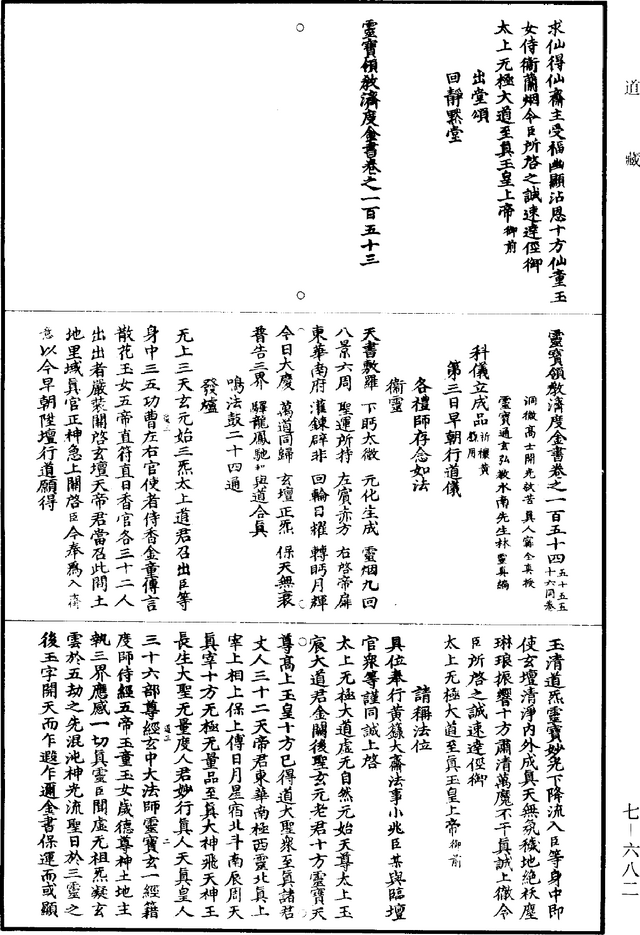 道藏
求仙得仙齋主受福幽顯沾恩十方仙童玉
女侍衛蘭烟令臣所啓之誠速達徑御
太上无極大道至眞玉皇上帝御前
出堂頌
回靜默堂
靈寶領敎濟度金書卷之一百五十三
靈寶領敎濟度金書卷之一百五十四 五十五五十六同卷
洞微高士開光救苦眞人甯全眞授
靈寶通玄弘敎水南先生林靈眞編
科儀立成品 祈禳黃籙用
第三日早朝行道儀
各禮師存念如法
衛靈
天書敷羅 下眄太微 元化生成 靈烟九回
八景六周 聖運所持 左賓赤方 右啓帝扉
東華南府 灌鍊辟非 回輪日耀 轉眄月輝
今日大慶 萬道同歸 玄壇正炁 保天無衰
普告三界 驛龍鳳馳 如與道合眞
鳴法鼓二十四通
發爐
无上三天玄元始三炁太上道君召出臣等
身中三五功曹左右官使者侍香金童傳言
散花玉女五帝直符直日香官各三十二人
出出者嚴裝關啓玄壇天帝君當召此間土
地里域眞官正神急上關啓臣今奉爲入齋
意以今早朝陞壇行道願得
玉清道炁靈寶妙光下降流入臣等身中即
使玄壇清淨內外成眞天無氛穢地絕袄塵
琳琅振響十方肅清萬魔不干眞誠上徹令
臣所啓之誠速達徑御
太上无極大道至眞玉皇上帝御前
請稱法位
具位奉行黃籙大齋法事小兆臣某與臨壇
官衆等謹同誠上啓
太上无極大道虛无自然元始天尊太上玉
宸大道君金闕後聖玄元老君十方靈寶天
尊高上玉皇十方已得道大聖衆至眞諸君
丈人三十二天帝君東華南極西靈北眞上
宰上相上保上傅日月星宿北斗南辰周天
眞宰十方无極无量品至眞大神飛天神王
長生大聖无量度人君妙行眞人天眞皇人
三十六部尊經玄中大法師靈寶玄一經籍
度師侍經五帝玉童玉女歲德尊神土地主
執三界應感一切眞靈臣聞虛无祖炁凝玄
雲於五劫之先混沌神光流聖日於三靈之
後玉字開天而乍遐乍邇金書保運而或顯
七—六八二